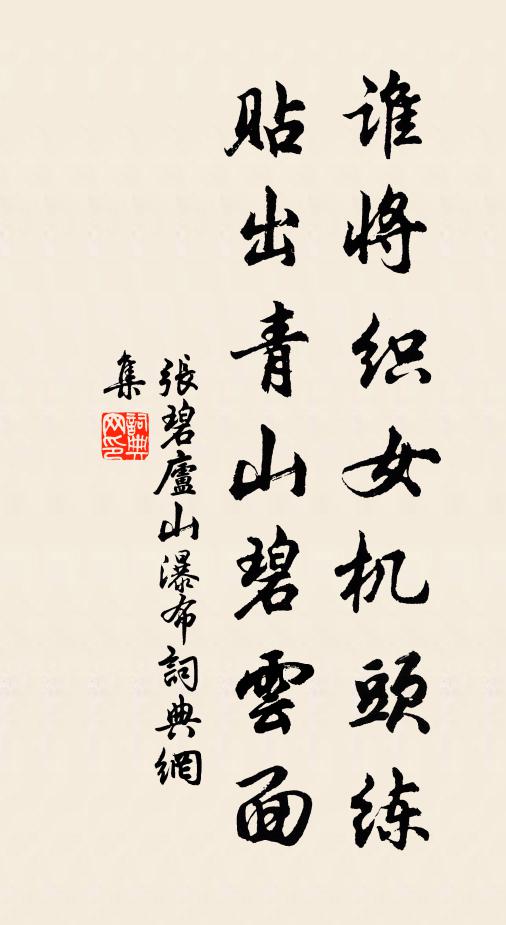 谁将织女机頭练
贴出青山碧雲面
張碧廬山瀑布詞典網
集
詞典网印